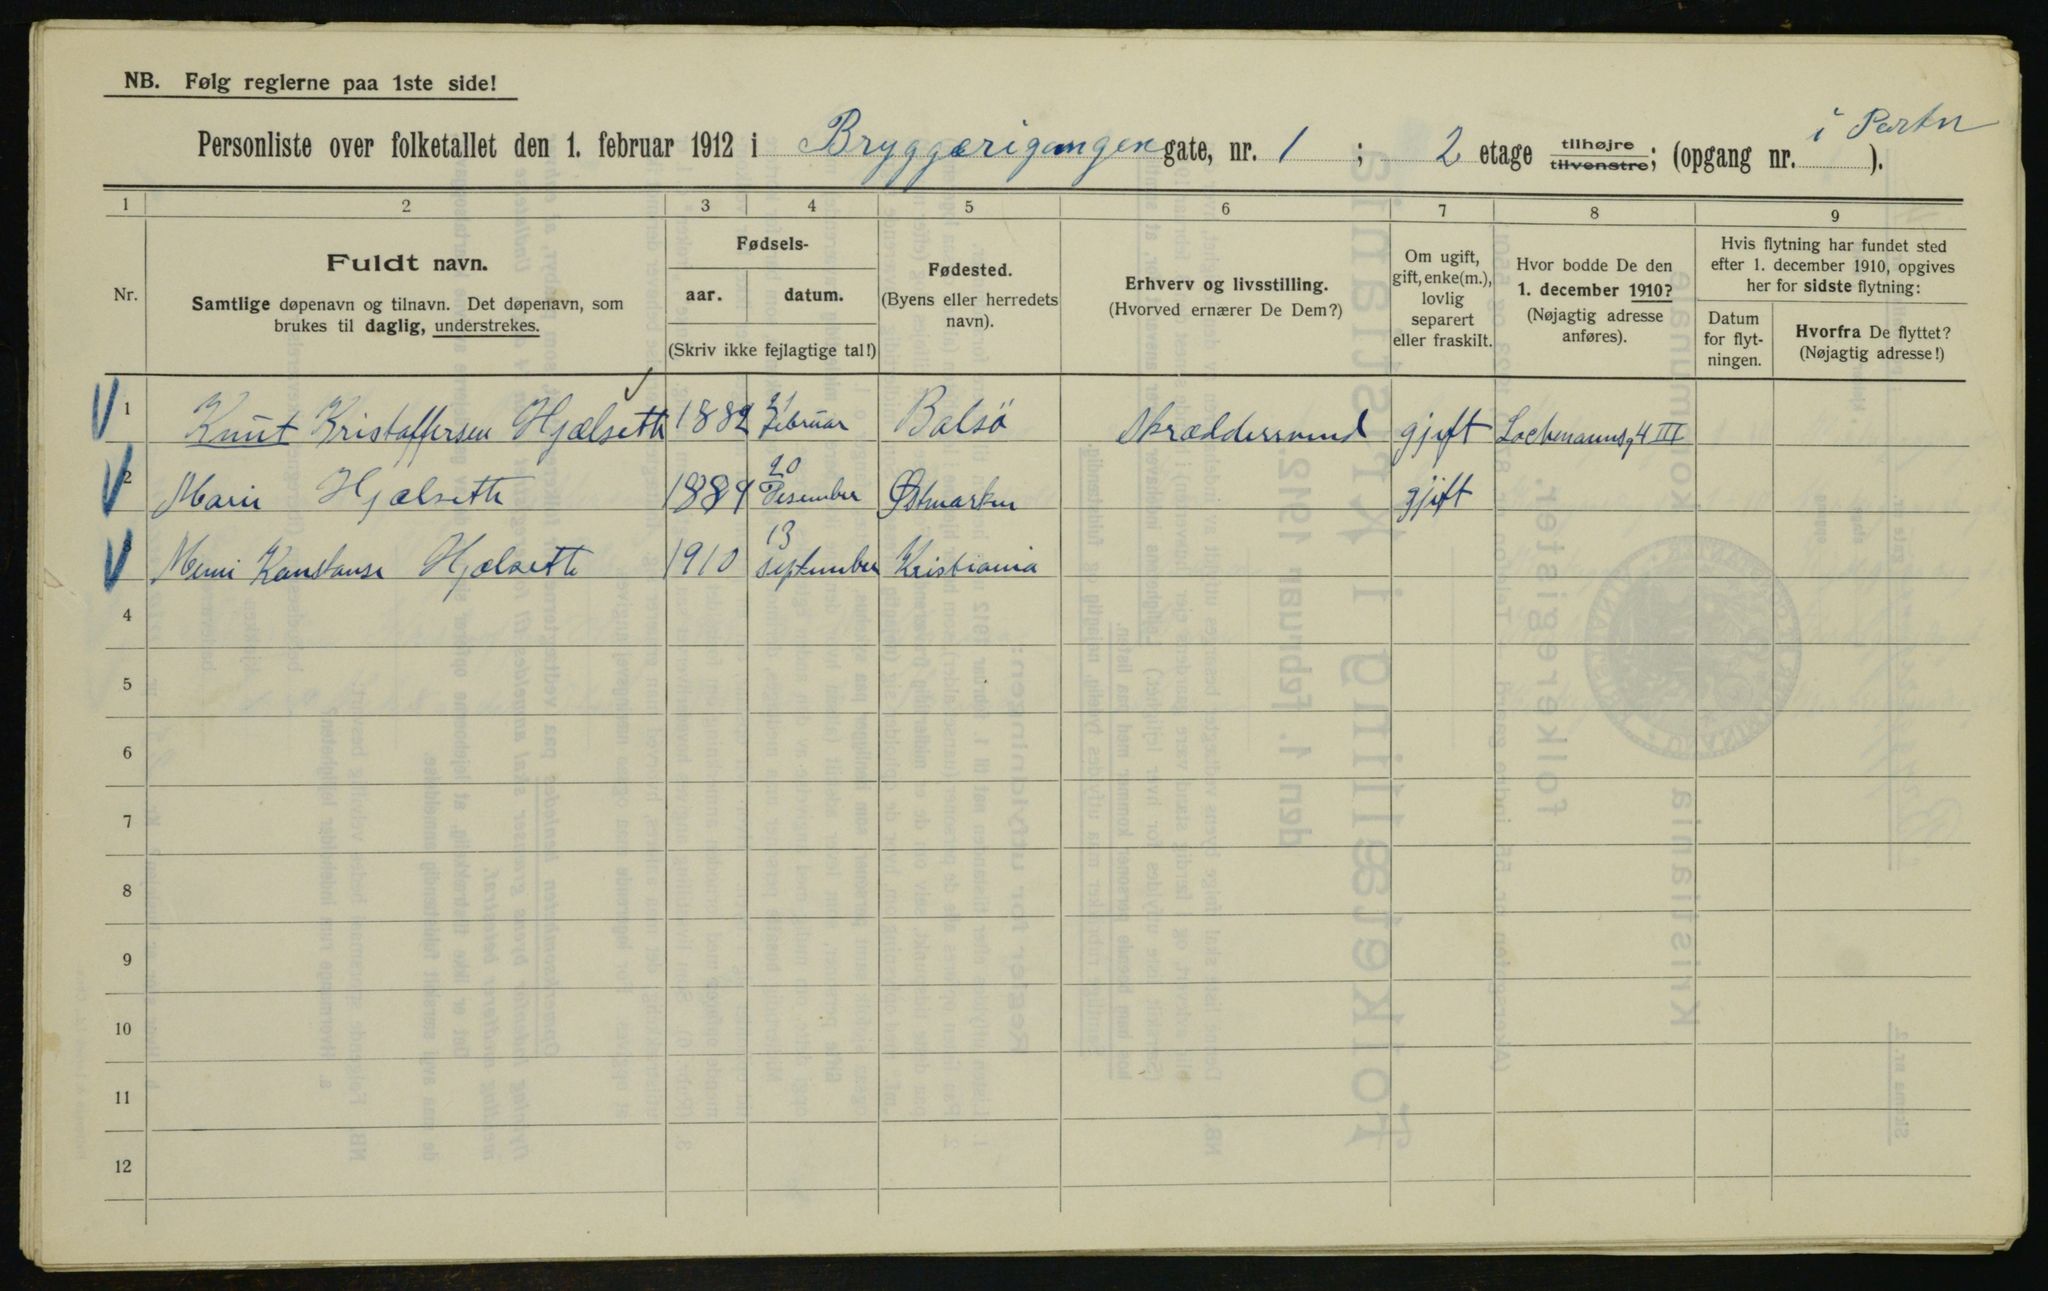 NB. Følg reglerne paa 1ste side!
i Porten
Personliste over folketallet den 1. februar 1912 i Bryggerigangen gate, nr. 1 ; 2 etage tilhøjre tilvenstre; (opgang nr. ).
1 2 3 4 5 6 7 8 9
Nr.
Fuldt navn.
Samtlige døpenavn og tilnavn. Det døpenavn, som
brukes til daglig, understrekes.
Fødsels-
aar. datum.
(Skriv ikke fejlagtige tal!)
Fødested.
(Byens eller herredets
navn).
Erhverv og livsstilling.
(Hvorved ernærer De Dem?)
Om ugift,
gift, enke(m.),
lovlig
separert
eller fraskilt.
Hvor bodde De den
1. december 1910?
(Nøjagtig adresse
anføres).
Hvis flytning har fundet sted
efter 1. december 1910, opgives
her for sidste flytning:
Datum
for flyt-
ningen.
Hvorfra De flyttet?
(Nøjagtig adresse!)
1 Knut Kristoffersen Hjælseth 1882 Februar Bolsö Skræddersvend gjift Lochmannsg 4 III
2 Marie Hjælseth 20 Desember Østmarken gjift
3 Konstanse Hjælseth 1910 13 September Kristiania
4
5
6
7
8
9
10
11
12